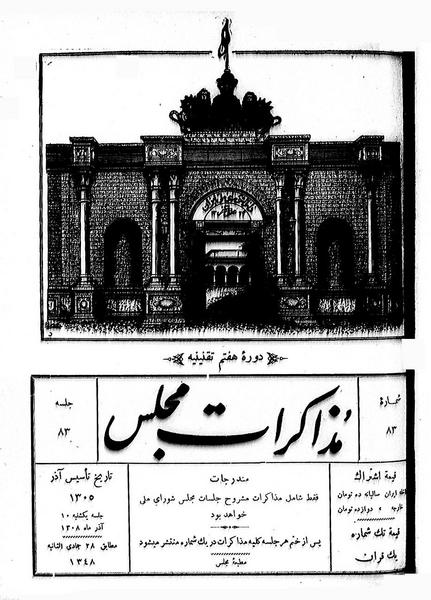 دورهٔ هفتم تقنینیه
شمارهٔ
۸۳
مذاکرات مجلس
جلسه
۸۳
قیمة اشتراک
ایران سالیانه ده تومان
خارجه » دوازده تومان
قیمة تک شماره
یک قران
مندرجات
فقط شامل مذاکرات مشروح جلسات مجلس شورای ملی
خواهد بود
پس از ختم هر جلسه کلیه مذاکرات در یک شماره منتشر میشود
مطبعهٔ مجلس
تاریخ تأسیس آذر
۱۳۰۵
جلسه یکشنبه ۱۰
آذر ماه ۱۳۰۸
مطابق ۲۸ جمادی الثانیه
۱۳۴۸